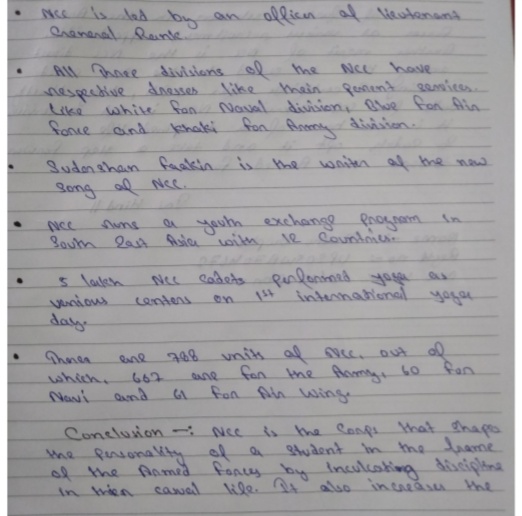 • NCC is led by an officer of lieutenant
General Rank.
• All Three divisions of the NCC have
respective dresses like their parent services.
Like white for Naval division, Blue for Air
force and khaki for Army division.
• Sudarshan faakir is the writer of the new
song of NCC.
• NCC runs a youth exchange program in
South East Asia with, 12 Countries.
• 5 lakh NCC cadets performed yoga at
various centers on 1st international yoga
day.
• There are 788 units of NCC. out of
which, 667 are for the Army, 60 for
Navi and 61 for Air wing.
Conclusion -: NCC is the Corps that shaps
the personality of a student in the frame
of the Armed forces by Inculcating discipline
in their casual life. It also increases the